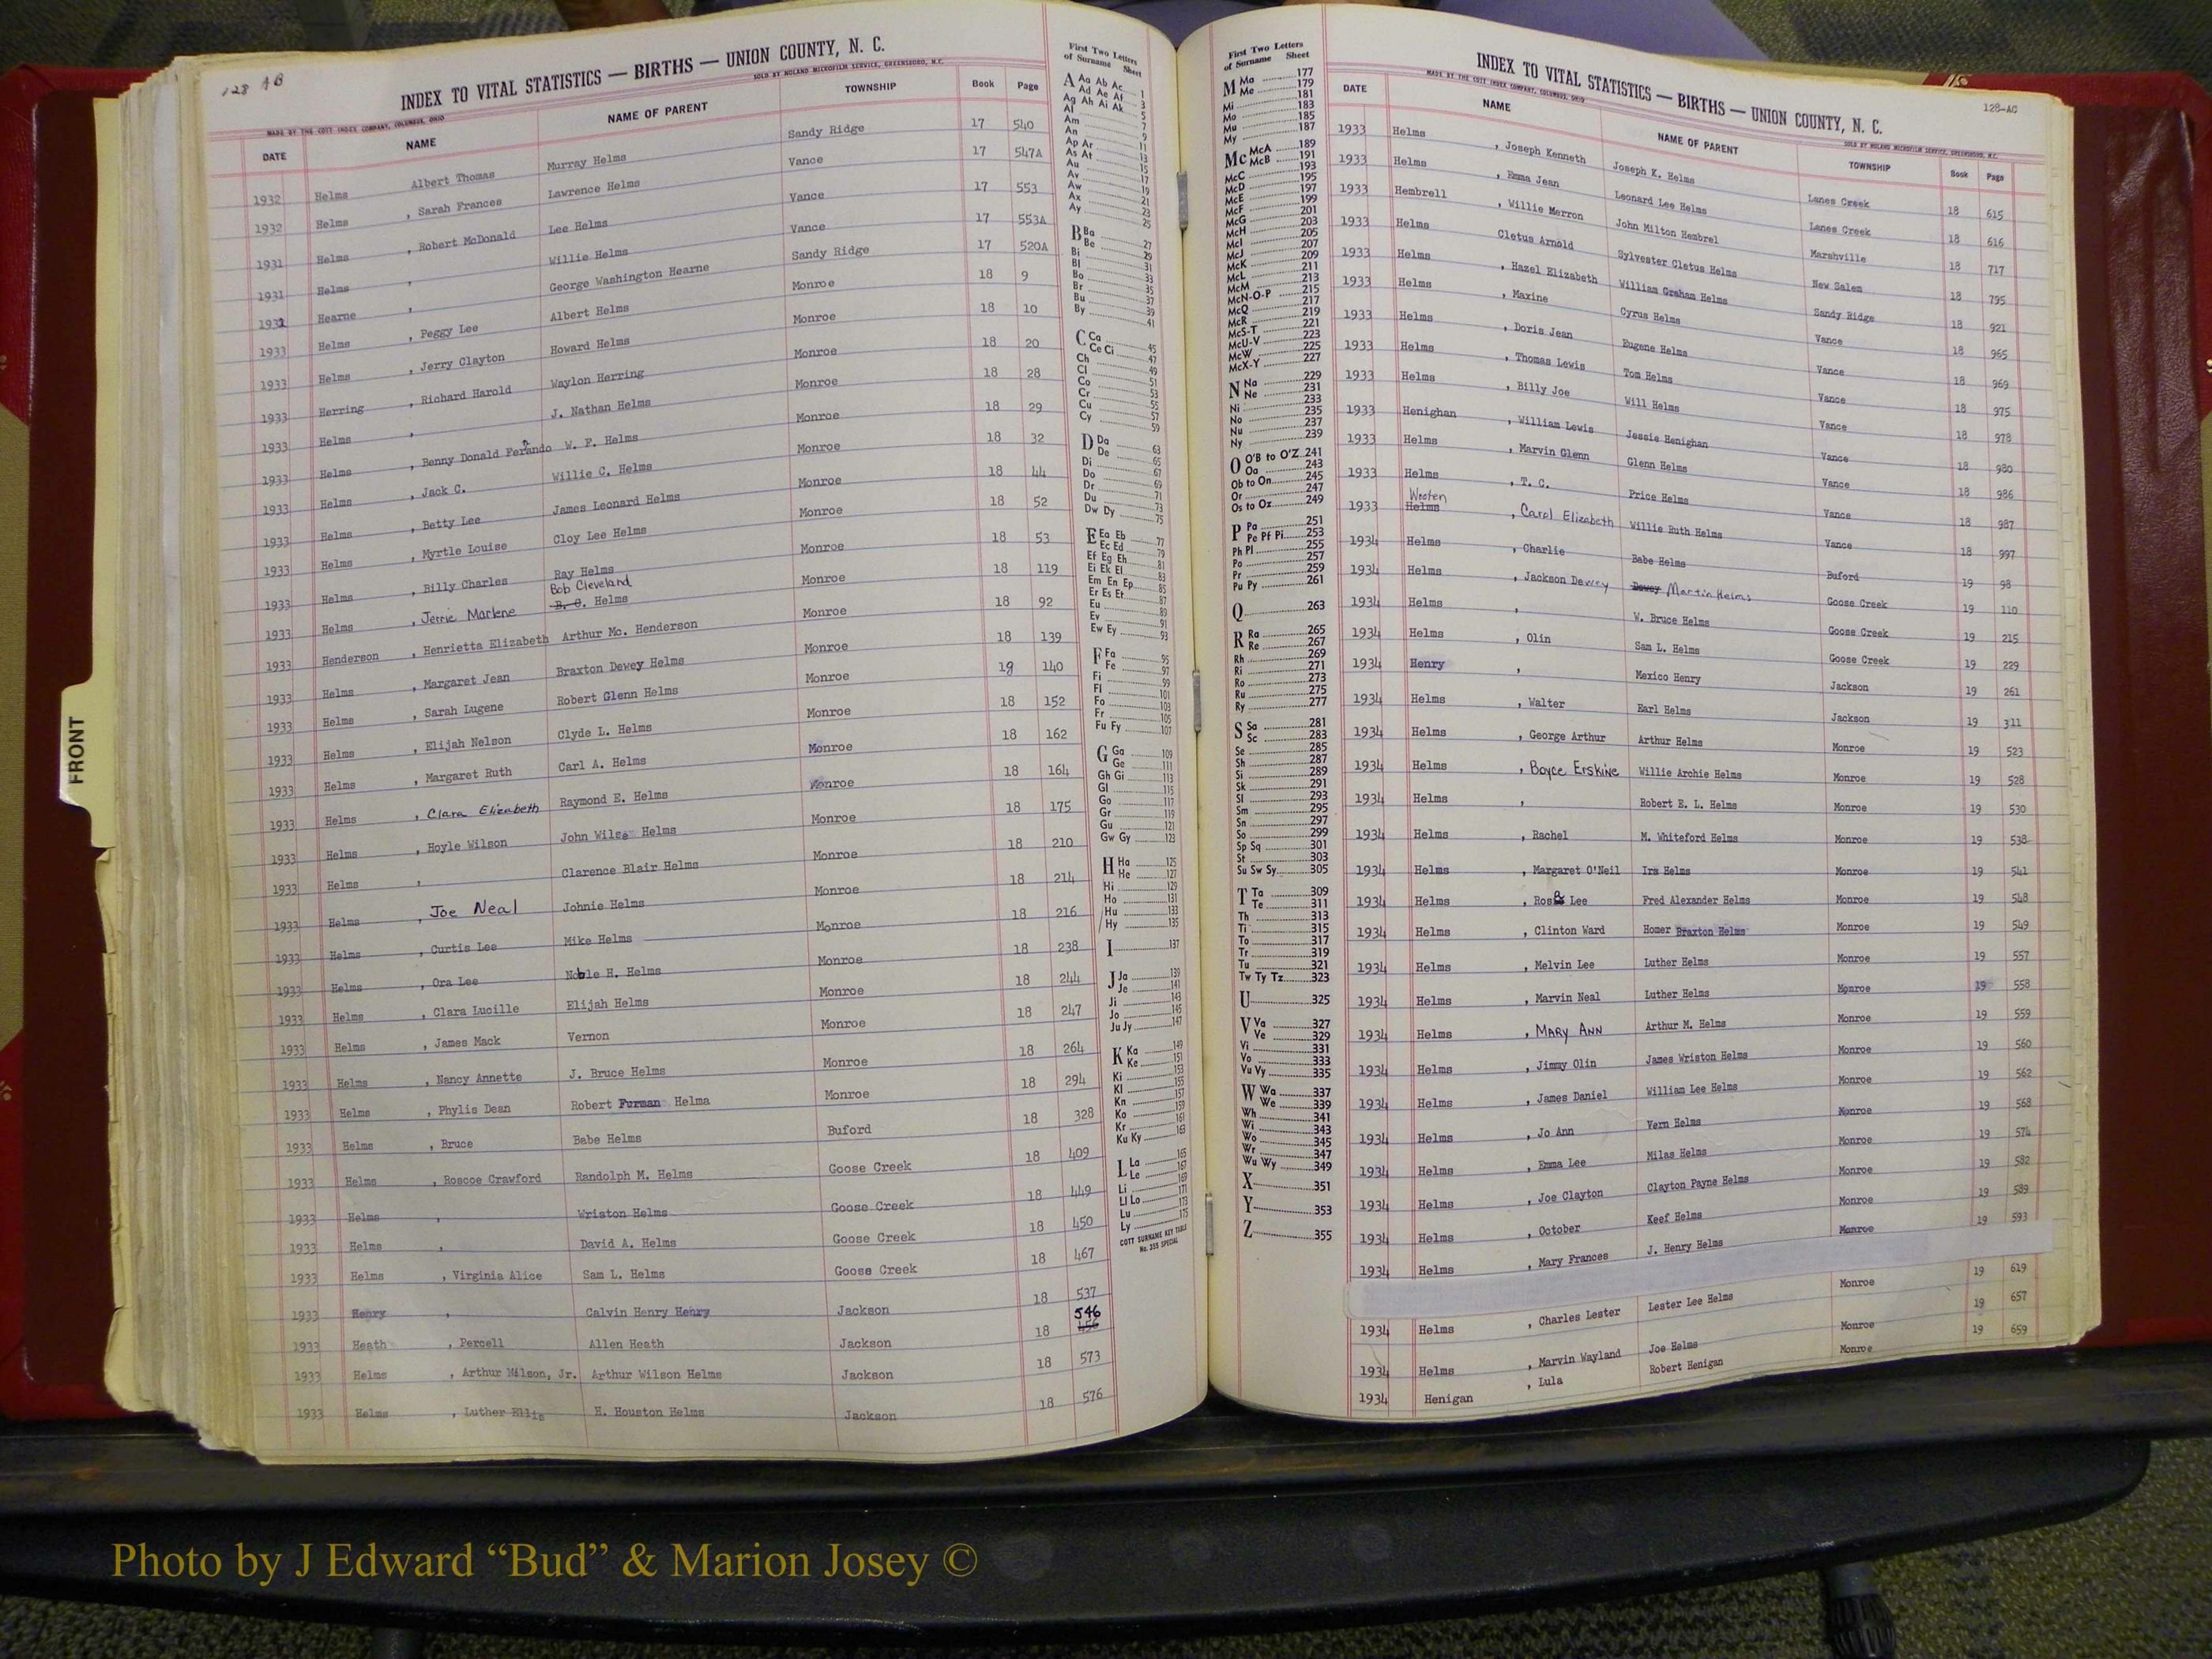 128 AB
INDEX TO VITAL STATISTICS — BIRTHS — UNION COUNTY, N. C.
MADE BY THE COTT INDEX COMPANY, COLUMBUS, OHIO
SOLD BY NOLAND MICROFILM SERVICE, GREENSBORO, N.C.
DATE NAME NAME OF PARENT TOWNSHIP Book Page
1932 Helms Albert Thomas Murray Helms Sandy Ridge 17 540
1932 Helms , Sarah Frances Lawrence Helms Vance 17 547A
1931 Helms , Robert McDonald Lee Helms Vance 17 553
1931 Helms , Willie Helms Vance 17 553A
1931 Hearne , George Washington Hearne Sandy Ridge 17 520A
1933 Helms , Peggy Lee Albert Helms Monroe 18 9
1933 Helms , Jerry Clayton Howard Helms Monroe 18 10
1933 Herring , Richard Harold Waylon Herring Monroe 18 20
1933 Helms , J. Nathan Helms Monroe 18 28
1933 Helms , Benny Donald Ferando W. F. Helms Monroe 18 29
1933 Helms , Jack C. Willie C. Helms Monroe 18 32
1933 Helms , Betty Lee James Leonard Helms Monroe 18 44
1933 Helms , Myrtle Louise Cloy Lee Helms Monroe 18 52
1933 Helms , Billy Charles Ray Helms Monroe 18 53
1933 Helms , Jerrie Marlene Bob Cleveland Helms Monroe 18 119
1933 Henderson , Henrietta Elizabeth Arthur Mc. Henderson Monroe 18 92
1933 Helms , Margaret Jean Braxton Dewey Helms Monroe 18 139
1933 Helms , Sarah Lugene Robert Glenn Helms Monroe 18 140
1933 Helms , Elijah Nelson Clyde L. Helms Monroe 18 152
1933 Helms , Margaret Ruth Carl A. Helms Monroe 18 162
1933 Helms , Clara Elizabeth Raymond E. Helms Monroe 18 164
1933 Helms , Hoyle Wilson John Wilse Helms Monroe 18 175
1933 Helms , Clarence Blair Helms Monroe 18 210
1933 Helms , Joe Neal Johnie Helms Monroe 18 214
1933 Helms , Curtis Lee Mike Helms Monroe 18 216
1933 Helms , Ora Lee Noble H. Helms Monroe 18 238
1933 Helms , Clara Lucille Elijah Helms Monroe 18 244
1933 Helms , James Mack Vernon Monroe 18 247
1933 Helms , Nancy Annette J. Bruce Helms Monroe 18 264
1933 Helms , Phylis Dean Robert Furman Helms Monroe 18 294
1933 Helms , Bruce Babe Helms Buford 18 328
1933 Helms , Roscoe Crawford Randolph M. Helms Goose Creek 18 409
1933 Helms , Wriston Helms Goose Creek 18 449
1933 Helms , David A. Helms Goose Creek 18 450
1933 Helms , Virginia Alice Sam L. Helms Goose Creek 18 467
1933 Henry , Calvin Henry Henry Jackson 18 537
1933 Heath , Percell Allen Heath Jackson 18 546 456
1933 Helms , Arthur Wilson, Jr. Arthur Wilson Helms Jackson 18 573
1933 Helms , Luther Ellis H. Houston Helms Jackson 18 576
FRONT
First Two Letters
of Surname Sheet
A Aa Ab Ac 1
Ad Ae Af 3
Ag Ah Ai Ak 5
Al 7
Am 9
An 11
Ap Ar 13
As At 15
Au 17
Av 19
Aw 21
Ax 23
Ay 25
B Ba 27
Be 29
Bi 31
Bl 33
Bo 35
Br 37
Bu 39
By 41
C Ca 45
Ce Ci 47
Ch 49
Cl 51
Co 53
Cr 55
Cu 57
Cy 59
D Da 63
De 65
Di 67
Do 69
Dr 71
Du 73
Dw Dy 75
E Ea Eb 77
Ec Ed 79
Ef Eg Eh 81
Ei Ek El 83
Em En Ep 85
Er Es Et 87
Eu 89
Ev 91
Ew Ey 93
F Fa 95
Fe 97
Fi 99
Fl 101
Fo 103
Fr 105
Fu Fy 107
G Ga 109
Ge 111
Gh Gi 113
Gl 115
Go 117
Gr 119
Gu 121
Gw Gy 123
H Ha 125
He 127
Hi 129
Ho 131
Hu 133
Hy 135
I 137
J Ja 139
Je 141
Ji 143
Jo 145
Ju Jy 147
K Ka 149
Ke 151
Ki 153
Kl 155
Kn 157
Ko 159
Kr 161
Ku Ky 163
L La 165
Le 167
Li 169
Ll Lo 171
Lu 173
Ly 175
COTT SURNAME KEY TABLE
No. 355 SPECIAL
First Two Letters
of Surname Sheet
M Ma 177
Me 179
181
Mi 183
Mo 185
Mu 187
My
Mc McA 189
McB 191
McC 193
McD 195
McE 197
McF 199
McG 201
McH 203
McI 205
McJ 207
McK 209
McL 211
McM 213
McN-O-P 215
McQ 217
McR 219
McS-T 221
McU-V 223
McW 225
McX-Y 227
N Na 229
Ne 231
Ni 233
No 235
Nu 237
Ny 239
O O'B to O'Z 241
Oa 243
Ob to On 245
Or 247
Os to Oz 249
P Pa 251
Pe Pf Pi 253
Ph Pl 255
Po 257
Pr 259
Pu Py 261
Q 263
R Ra 265
Re 267
Rh 269
Ri 271
Ro 273
Ru 275
Ry 277
S Sa 281
Sc 283
Se 285
Sh 287
Si 289
Sk 291
Sl 293
Sm 295
Sn 297
So 299
Sp Sq 301
St 303
Su Sw Sy 305
T Ta 309
Te 311
Th 313
Ti 315
To 317
Tr 319
Tu 321
Tw Ty Tz 323
U 325
V Va 327
Ve 329
Vi 331
Vo 333
Vu Vy 335
W Wa 337
We 339
Wh 341
Wi 343
Wo 345
Wr 347
Wu Wy 349
X 351
Y 353
Z 355
128-AC
INDEX TO VITAL STATISTICS — BIRTHS — UNION COUNTY, N. C.
MADE BY THE COTT INDEX COMPANY, COLUMBUS, OHIO
SOLD BY NOLAND MICROFILM SERVICE, GREENSBORO, N.C.
DATE NAME NAME OF PARENT TOWNSHIP Book Page
1933 Helms , Joseph Kenneth Joseph K. Helms Lanes Creek 18 615
1933 Helms , Emma Jean Leonard Lee Helms Lanes Creek 18 616
1933 Hembrell , Willie Merron John Milton Hembrel Marshville 18 717
1933 Helms Cletus Arnold Sylvester Cletus Helms New Salem 18 795
1933 Helms , Hazel Elizabeth William Graham Helms Sandy Ridge 18 921
1933 Helms , Maxine Cyrus Helms Vance 18 965
1933 Helms , Doris Jean Eugene Helms Vance 18 969
1933 Helms , Thomas Lewis Tom Helms Vance 18 975
1933 Helms , Billy Joe Will Helms Vance 18 978
1933 Henighan , William Lewis Jessie Henighan Vance 18 980
1933 Helms , Marvin Glenn Glenn Helms Vance 18 986
1933 Helms , T. C. Price Helms Vance 18 987
1933 Wooten Helms , Carol Elizabeth Willie Ruth Helms Vance 18 997
1934 Helms , Charlie Babe Helms Buford 19 98
1934 Helms , Jackson Dewey Dewey Martin Helms Goose Creek 19 110
1934 Helms , W. Bruce Helms Goose Creek 19 215
1934 Helms , Olin Sam L. Helms Goose Creek 19 229
1934 Henry , Mexico Henry Jackson 19 261
1934 Helms , Walter Earl Helms Jackson 19 311
1934 Helms , George Arthur Arthur Helms Monroe 19 523
1934 Helms , Boyce Erskine Willie Archie Helms Monroe 19 528
1934 Helms , Robert E. L. Helms Monroe 19 530
1934 Helms , Rachel M. Whiteford Helms Monroe 19 538
1934 Helms , Margaret O'Neil Ira Helms Monroe 19 541
1934 Helms , Rosa Lee Fred Alexander Helms Monroe 19 548
1934 Helms , Clinton Ward Homer Braxton Helms Monroe 19 549
1934 Helms , Melvin Lee Luther Helms Monroe 19 557
1934 Helms , Marvin Neal Luther Helms Monroe 19 558
1934 Helms , MARY ANN Arthur M. Helms Monroe 19 559
1934 Helms , Jimmy Olin James Wriston Helms Monroe 19 560
1934 Helms , James Daniel William Lee Helms Monroe 19 562
1934 Helms , Jo Ann Vern Helms Monroe 19 568
1934 Helms , Emma Lee Milas Helms Monroe 19 574
1934 Helms , Joe Clayton Clayton Payne Helms Monroe 19 582
1934 Helms , October Keef Helms Monroe 19 589
1934 Helms , Mary Frances J. Henry Helms Monroe 19 593
1934 Helms , Charles Lester Lester Lee Helms Monroe 19 619
1934 Helms , Marvin Wayland Joe Helms Monroe 19 657
1934 Henigan , Lula Robert Henigan Monroe 19 659
Photo by J Edward “Bud” & Marion Josey ©